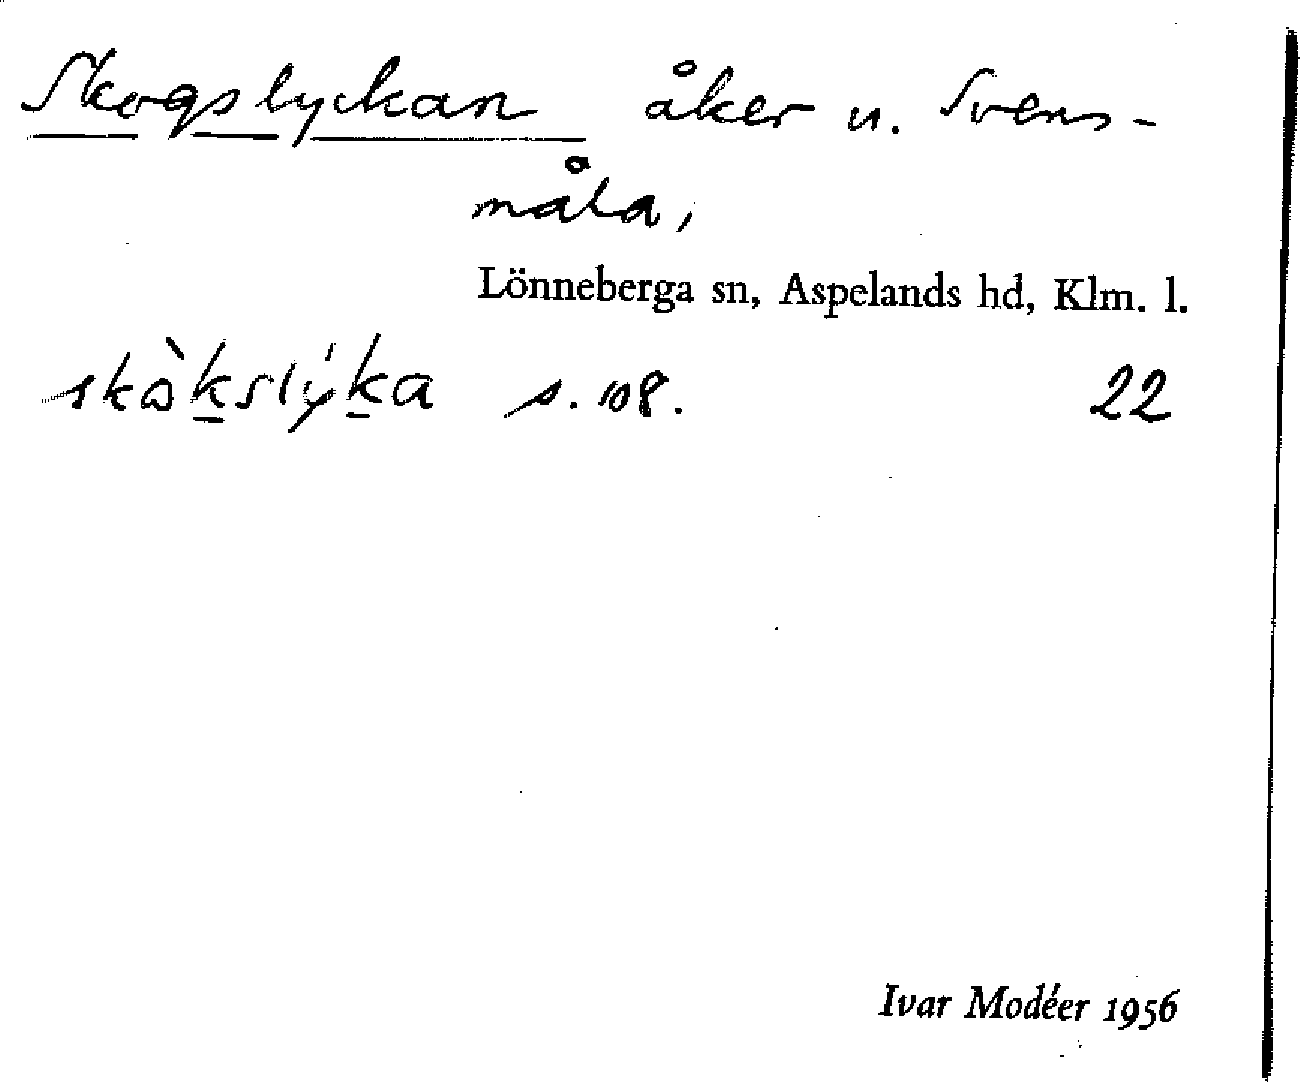 Skogslyckan åker u. Svens-
måla,
Lönneberga sn, Aspelands hd, Klm. l.
skò̀kslý́ka s. 108. 22
Ivar Modéer 1956